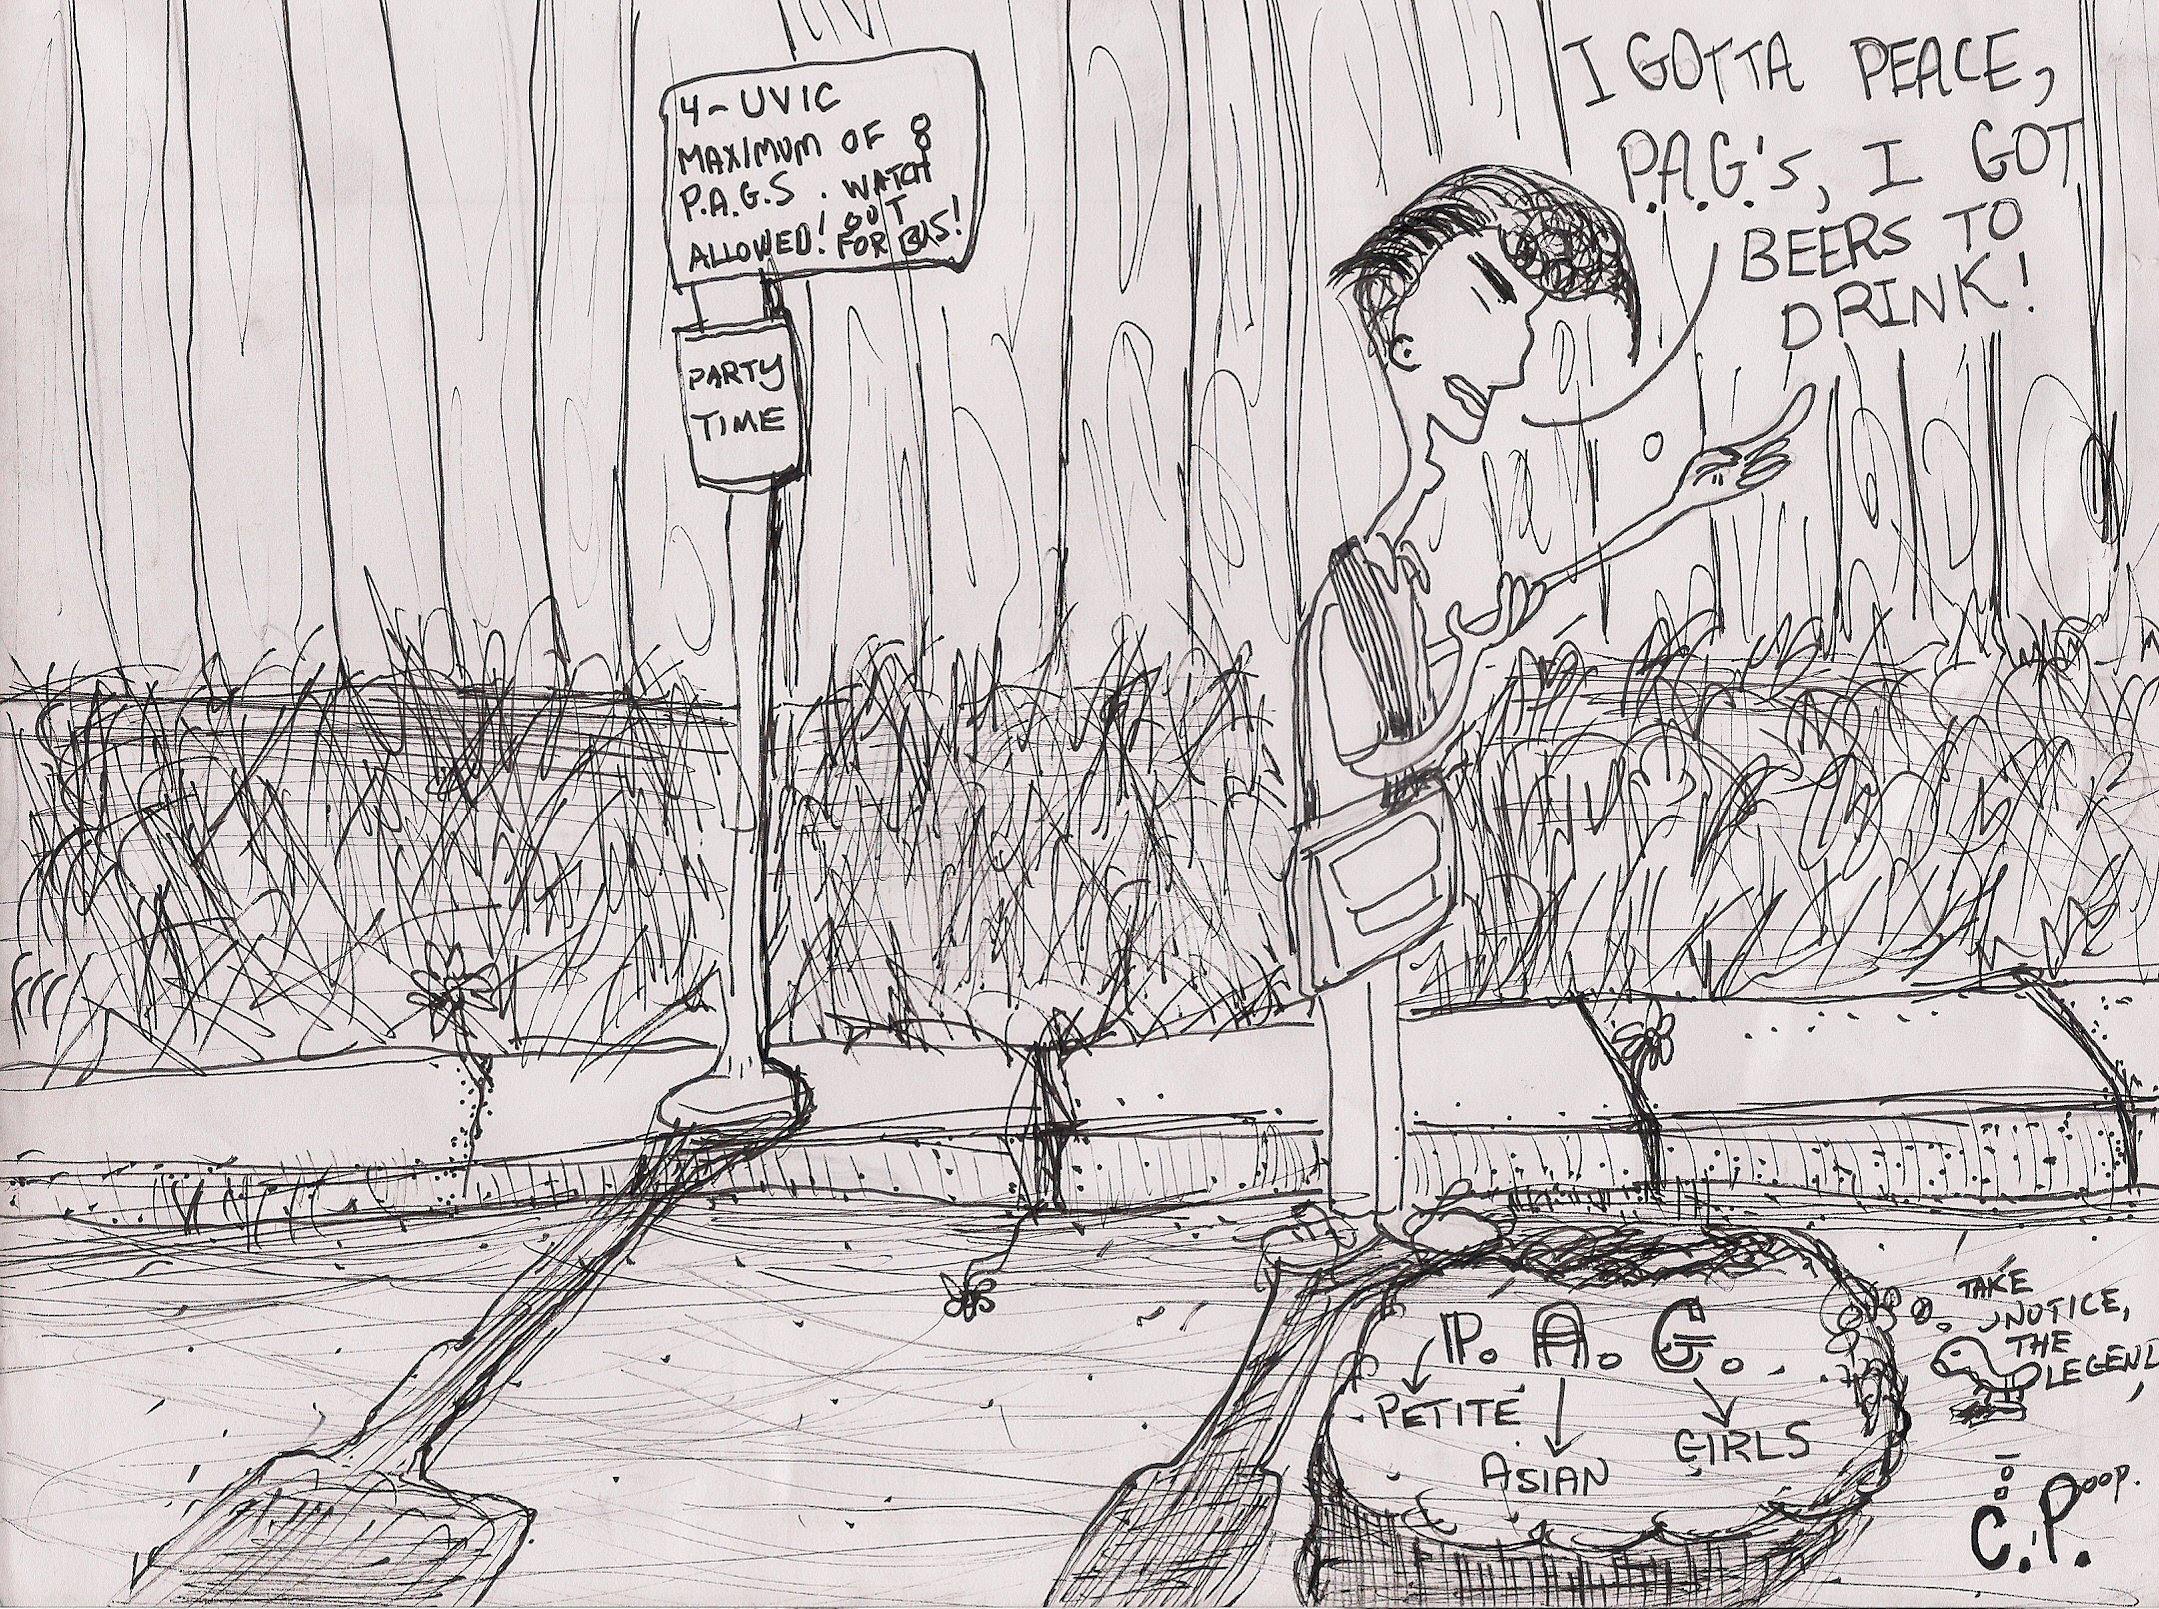 4-UVIC
MAXIMUM OF 8
P.A.G.S . WATCH
ALLOWED! OUT
FOR BUS!
PARTY
TIME
I GOTTA PEACE,
P.A.G.'s, I GOT
BEERS TO
DRINK!
P. A. G.
PETITE
ASIAN
GIRLS
TAKE
NOTICE,
THE
LEGEND
C.P.oop.